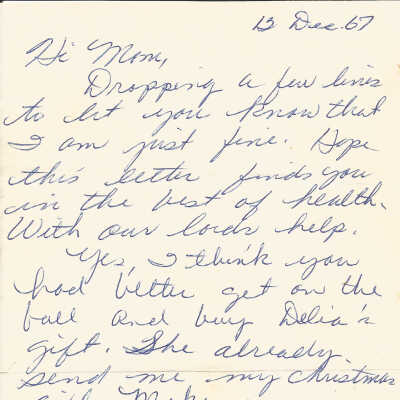 12 Dec 67
Hi Mom,
Dropping a few lines
to let you know that
I am just fine. Hope
this letter finds you
in the best of health.
With our lords help.
Yes, I think you
had better get on the
ball and buy Delia's
gift. She already
send me my Christmas